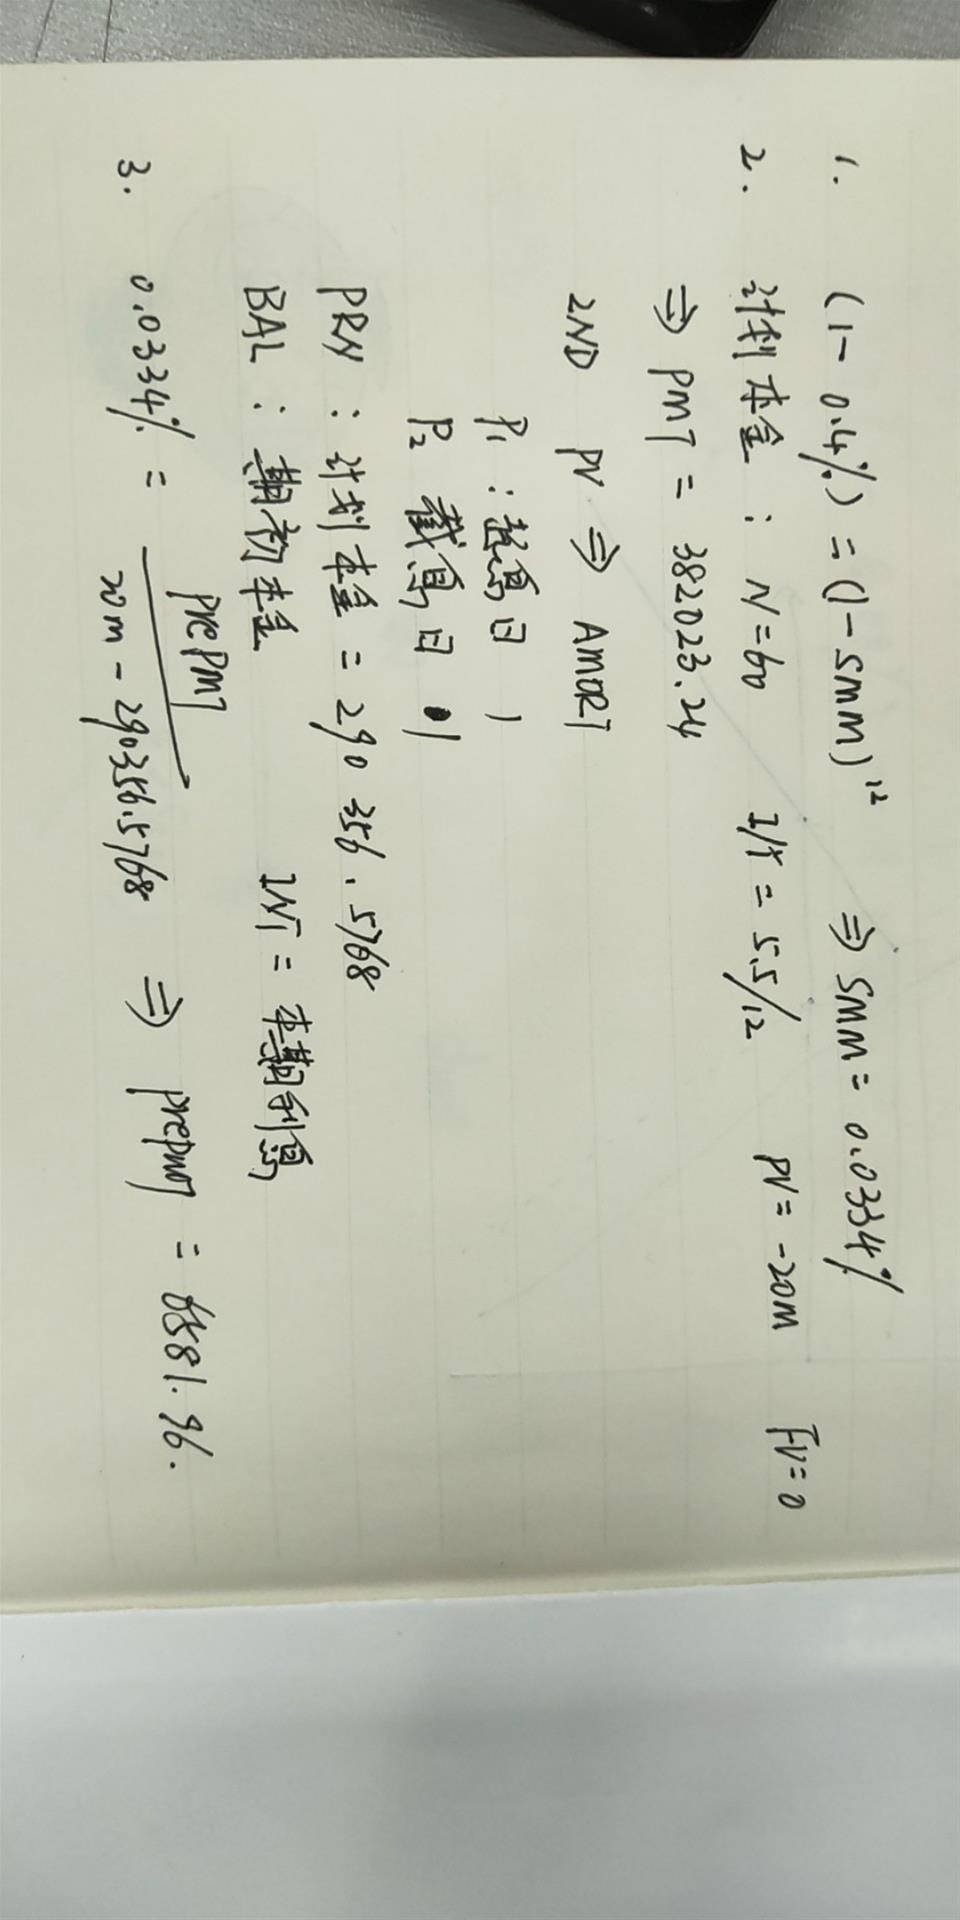 1. (1 - 0.4%) = (1 - SMM)^12 ⇒ SMM = 0.0334%
2. 计划本金 : N=60 I/Y = 5.5/12 PV = -20M FV=0
⇒ PMT = 382023.24
2ND PV ⇒ AMORT
P1 : 起息日 1
P2 截息日 1
PRN : 计划本金 = 290 356.5768
BAL : 期初本金 INT = 本期利息
3. 0.0334% = PrePMT / 20m - 290356.5768 ⇒ prepmt = 6581.96.